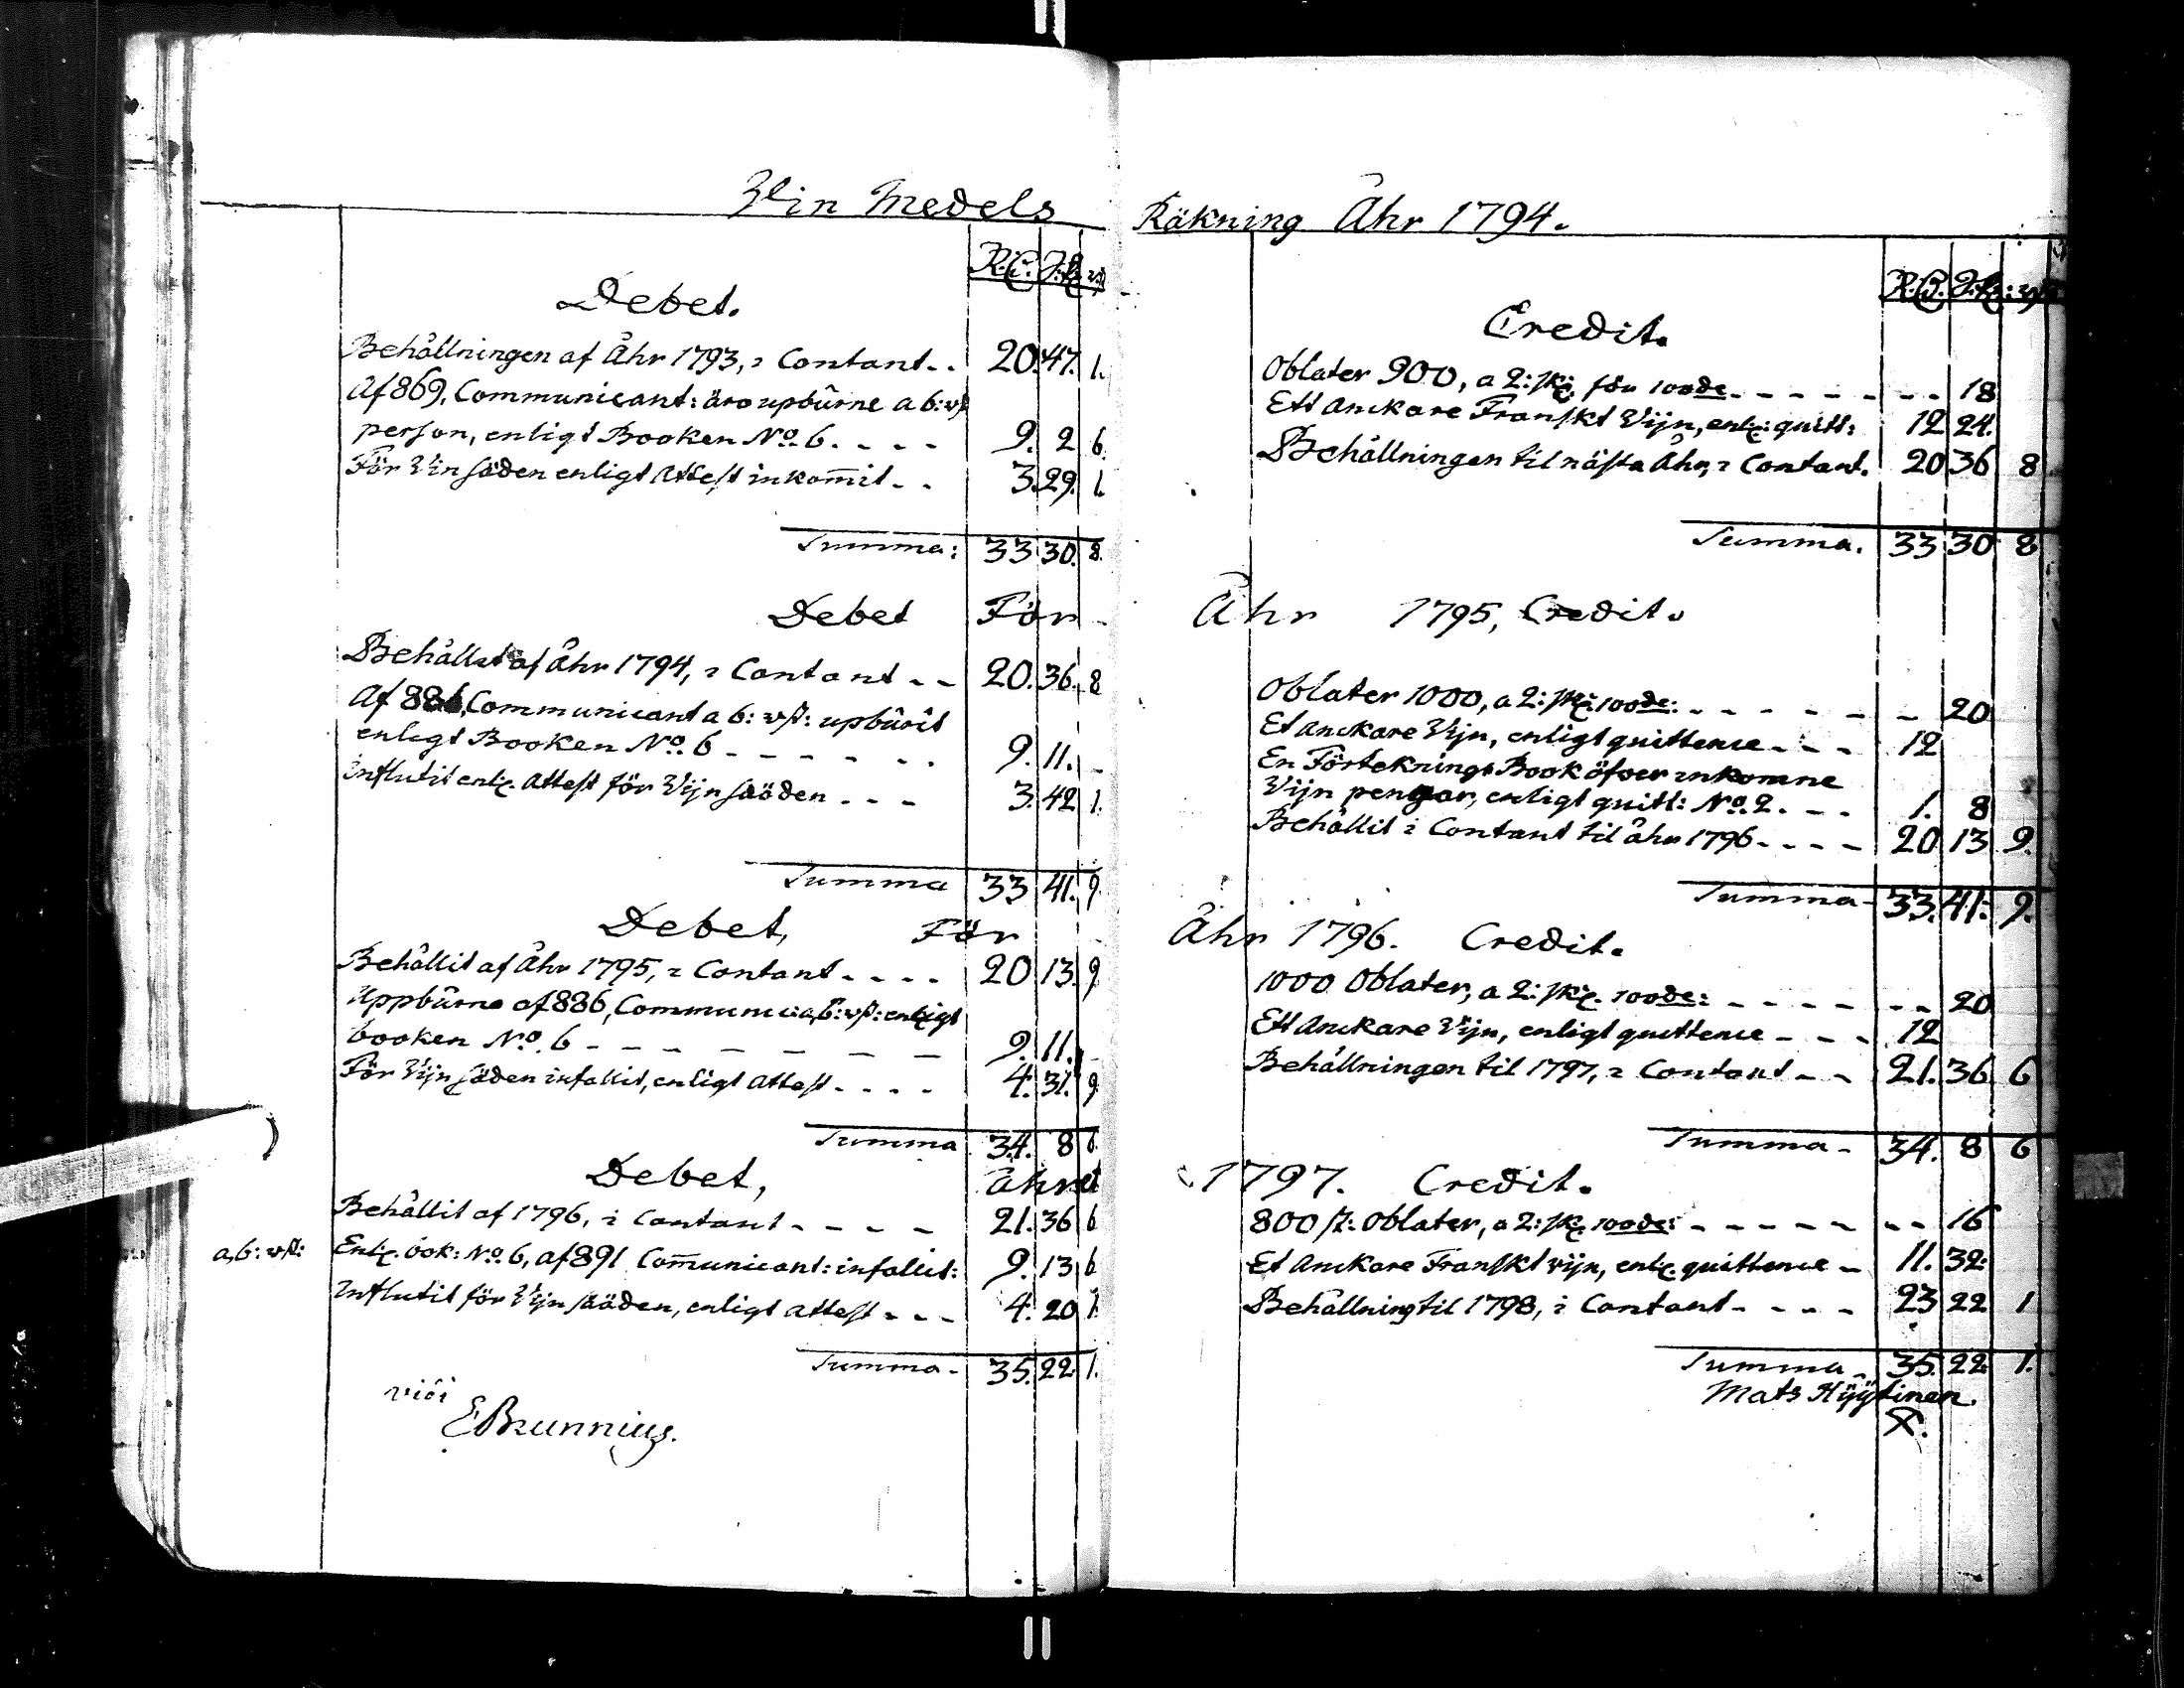 Vin Medels
R:d. sk: rst
Debet.
Behållningen af Åhr 1793, i Contant - - 20. 47. 1.
Af 869, Communicant: äro upburne a 6: rst:
person, enligt Booken No. 6. - - - 9. 2 6.
För Vin säden enligt Attest inkom̄it - - 3. 29. 1.
Summa: 33 30. 8.
Debet För
Behållit af Åhr 1794, i Contant - - 20. 36. 8
Af 886, Communicant a 6: rst: upburit
enligt Booken No. 6 - - - - - - 9. 11. -
Influtit enl. Attest för Vijn säöden - - - 3. 42 1.
Summa 33 41. 9.
Debet, För
Behållit af Åhr 1795, i Contant - - - - 20 13. 9
Uppburne af 886, Communic: a 6: rst: enligt
booken No. 6 - - - - - - - 9. 11. -
För Vijn säden infallit, enligt Attest - - - - 4. 31. 9.
Summa 34. 8 6.
Debet, Åhret
Behållit af 1796, i Contant - - - - 21. 36 6
a, 6: rst: Enl. book: No. 6, af 891 Com̄unicant: infallit: 9. 13 6
Influtit för Vijn säöden, enligt attest - - - 4. 20 1.
Summa - 35. 22. 1.
E Brunnius.
Räkning Åhr 1794.
R:d. sk: rst
Credit.
Oblater 900, a 2: sk: för 100de - - - - - - - - 18
Ett Anckare Franskt Vijn, enl: quitt: 12 24.
Behållningen til nästa Åhr, i Contant. 20 36 8
Summa. 33 30 8
Åhr 1795, Credit.
Oblater 1000, a 2: sk: 100de: - - - - - - - 20
Et Anckare Vijn, enligt quittence - - - 12
En Förteknings Book öfver inkomne
Vijn pengar, enligt quitt: No. 2. - - 1. 8
Behållit i Contant til åhr 1796 - - - - 20 13 9.
Summa - 33. 41. 9.
Åhr 1796. Credit.
1000 Oblater, a 2: sk: 100de: - - - - - - - 20
Ett Anckare Vijn, enligt quittence - - - 12
Behållningen til 1797, i Contant - - 21. 36 6
Summa - 34. 8 6
1797. Credit.
800 st: Oblater, a 2: sk: 100de: - - - - - - - - 16
Et Anckare Franskt vijn, enl: quittence - 11. 32:
Behållning til 1798, i Contant - - - - 23 22 1
Summa - 35. 22. 1.
Mats Hÿÿtinen.